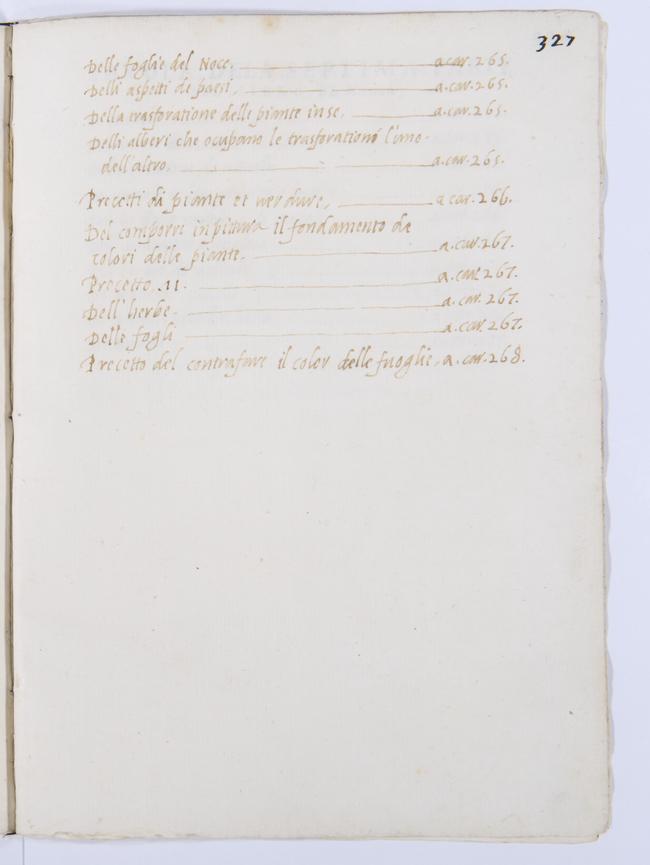 327
Delle foglie del Noce. a car. 265.
Delli aspetti de paesi. a. car. 265.
Della trasforatione delle piante in se. a. car. 265.
Delli alberi che ocupano le trasforationi l'uno
dell'altro. a. car. 265.
Precetti di piante et verdure. a car. 266.
Del comporre in pittura il fondamento de
colori delle piante. a. car. 267.
Precetto .11. a. car. 267.
Dell'herbe. a. car. 267.
Delle fogli a. car. 267.
Precetto del contrafare il color delle fuoglie. a. car. 268.